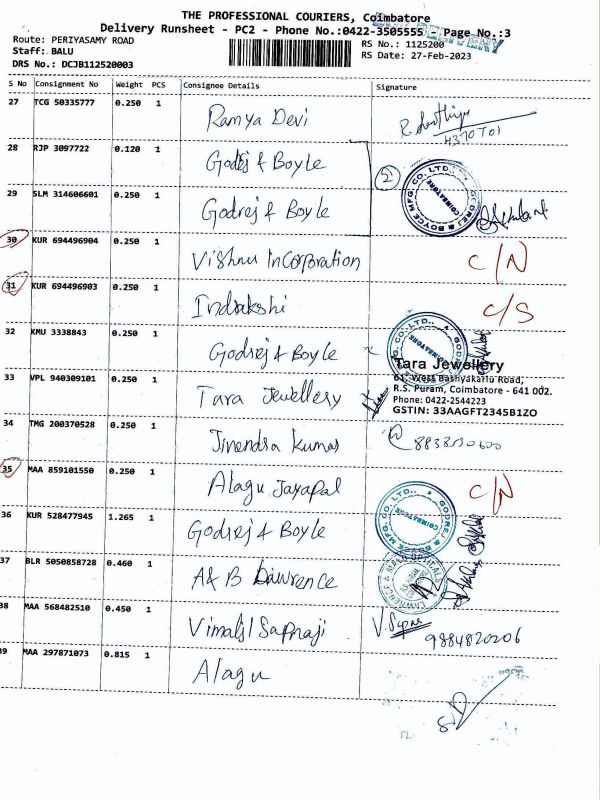 THE PROFESSIONAL COURIERS, Coimbatore
Delivery Runsheet - PC2 - Phone No.:0422-3505555 - Page No.:3
DELIVERY
Route: PERIYASAMY ROAD
Staff: BALU
DRS No.: DCJB112520003
RS No.: 1125200
RS Date: 27-Feb-2023
S No Consignment No Weight PCS Consignee Details Signature
27 TCG 50335777 0.250 1 Ramya Devi
4370701
28 RJP 3097722 0.120 1 Godrej & Boyle 2
GODREJ & BOYCE MFG. CO. LTD., COIMBATORE
29 SLM 314606601 0.250 1 Godrej & Boyle
30 KUR 694496904 0.250 1 Vishnu Incorporation C/N
31 KUR 694496903 0.250 1 Indrakshi C/S
32 KMU 3338843 0.250 1 Godrej & Boyle
GODREJ & BOYCE MFG. CO. LTD., COIMBATORE
33 VPL 940309101 0.250 1 Tara Jewellery
Tara Jewellery
61, West Bashyakarlu Road,
R.S. Puram, Coimbatore - 641 002.
Phone: 0422-2544223
GSTIN: 33AAGFT2345B1ZO
34 TMG 200370528 0.250 1 Jinendra Kumar
35 MAA 859101550 0.250 1 Alagu Jayapal C/N
36 KUR 528477945 1.265 1 Godrej & Boyle
GODREJ & BOYCE MFG. CO. LTD., COIMBATORE
37 BLR 5050858728 0.460 1 A & B Lawrence
38 MAA 568482510 0.450 1 Vimals/Sapnaji
9884820206
39 MAA 297871073 0.815 1 Alagu